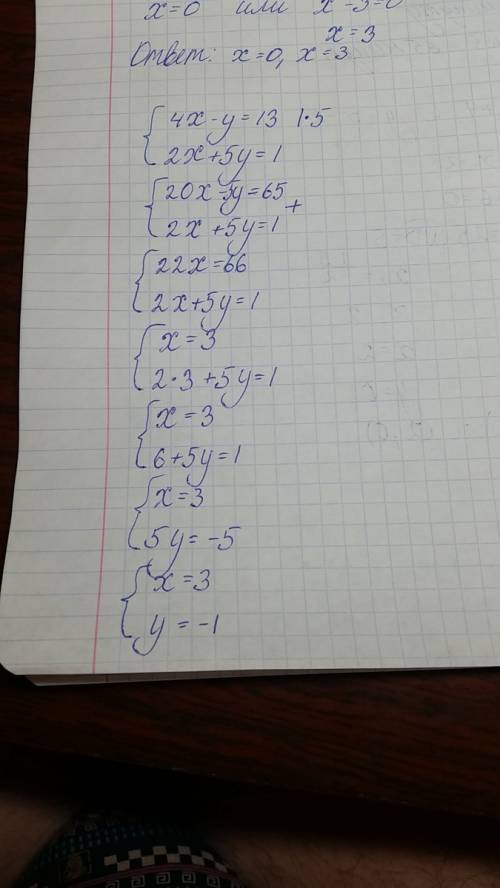 x=0 или x-3=0
x=3
Ответ: x=0, x=3
4x-y=13 |·5
2x+5y=1
20x-5y=65
+
2x+5y=1
22x=66
2x+5y=1
x=3
2·3+5y=1
x=3
6+5y=1
x=3
5y=-5
x=3
y=-1